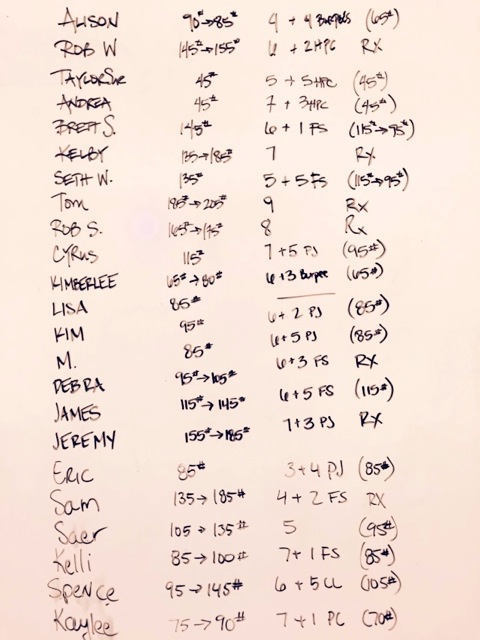 ALISON 90#→85# 4 + 4 Burpees (65#)
ROB W 145#→155# 6 + 2 HPC RX
TAYLOR 45# 5 + 5 HPC (45#)
ANDREA 45# 7 + 3 HPC (45#)
BRETT S. 145# 6 + 1 FS (115#→95#)
KELBY 135→185# 7 RX
SETH W. 135# 5 + 5 FS (115#→95#)
Tom 205# 9 RX
ROB S. 165#→175# 8 Rx
CYRUS 115# 7 + 5 PJ (95#)
KIMBERLEE 65#→80# 6 + 3 Burpee (65#)
LISA 85# 6 + 2 PJ (85#)
KIM 95# 6 + 5 PJ (85#)
M. 85# 6 + 3 FS RX
DEBRA 95#→105# 6 + 5 FS (115#)
JAMES 115#→145# 7 + 3 PJ RX
JEREMY 155#→185#
ERIC 85# 3 + 4 PJ (85#)
Sam 135→185# 4 + 2 FS RX
Saer 105→135# 5 (95#)
Kelli 85→100# 7 + 1 FS (85#)
Spence 95→145# 6 + 5 CL (105#)
Kaylee 75→90# 7 + 1 PC (70#)